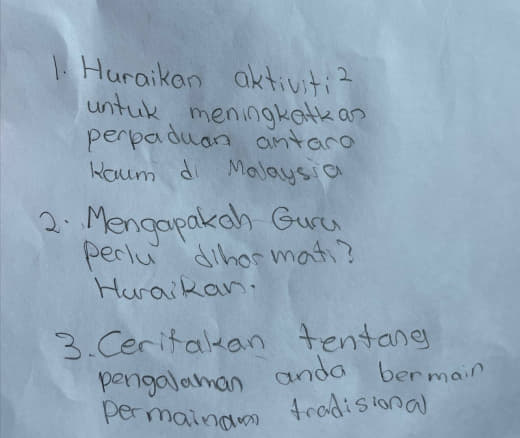 1. Huraikan aktiviti²
untuk meningkatkan
perpaduan antara
kaum di Malaysia
2. Mengapakah Guru
perlu dihormati?
Huraikan.
3. Ceritakan tentang
pengalaman anda bermain
permainan tradisional